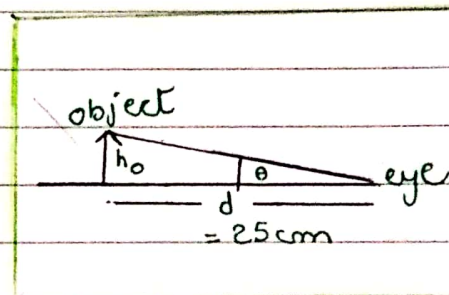 object
h₀ θ eye
d
= 25cm